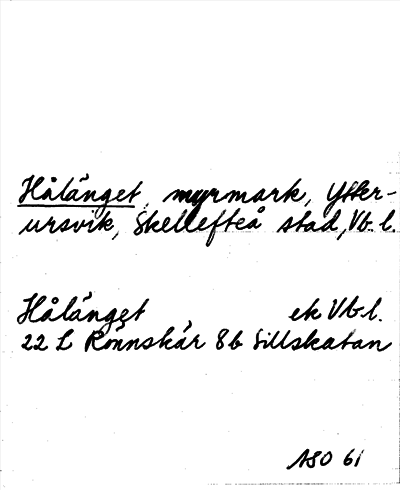 Hålänget, myrmark, Ytter-
ursvik, Skellefteå stad, Vb. l.
Hålänget, ek Vb. l.
22 L Rönnskär 8b Sillskatan
ASO 61